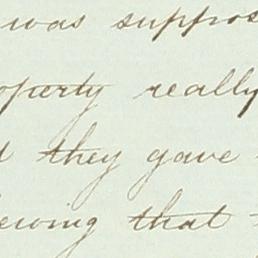 was suppos
operty really
they gave
ewing that